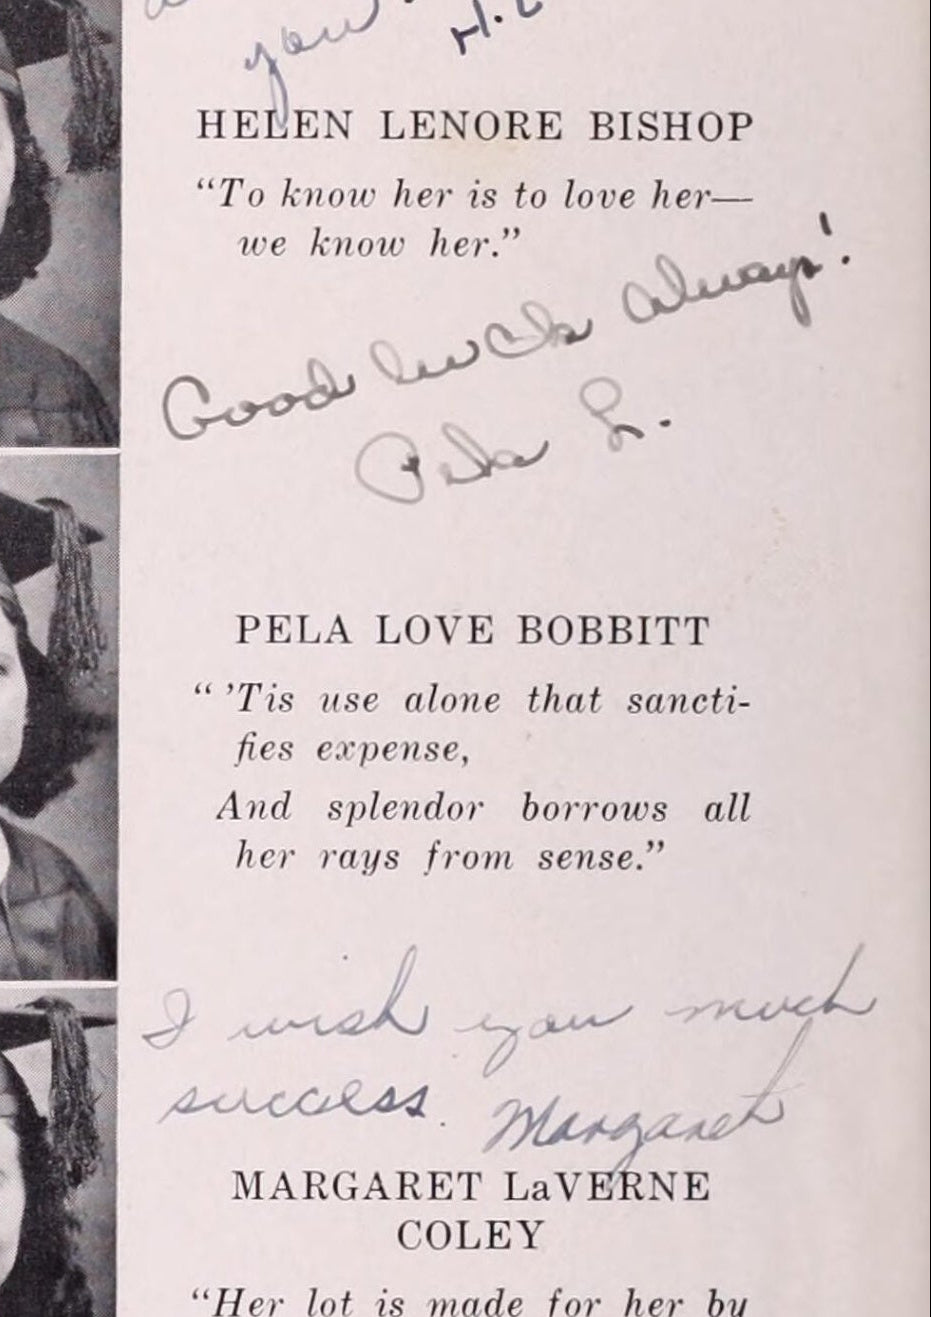 you
H.L
HELEN LENORE BISHOP
“To know her is to love her—
we know her.”
Good luck always!
Pela L.
PELA LOVE BOBBITT
“ ’Tis use alone that sancti-
fies expense,
And splendor borrows all
her rays from sense.”
I wish you much
success. Margaret
MARGARET LaVERNE
COLEY
“Her lot is made for her by